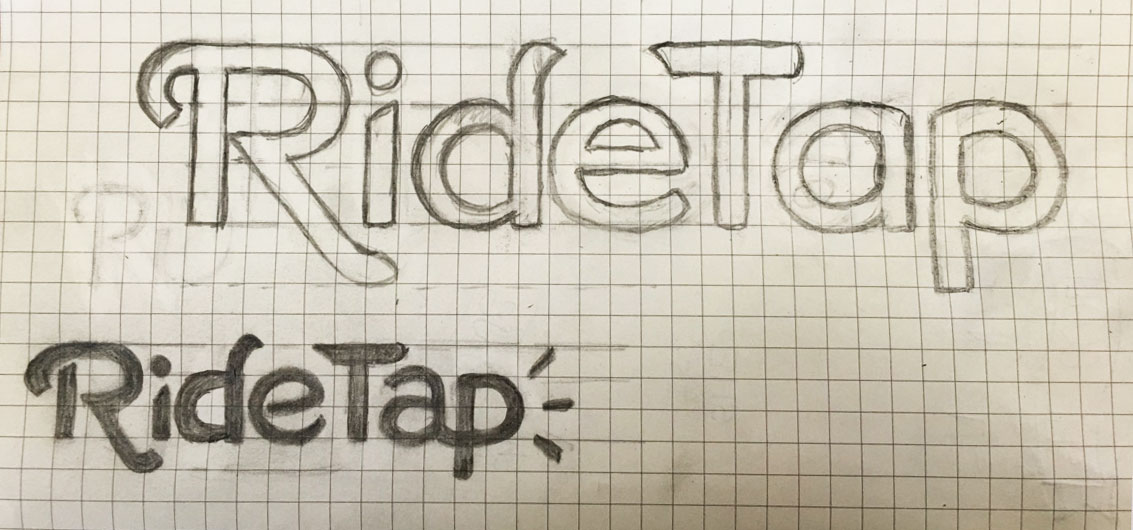 RideTap
RideTap